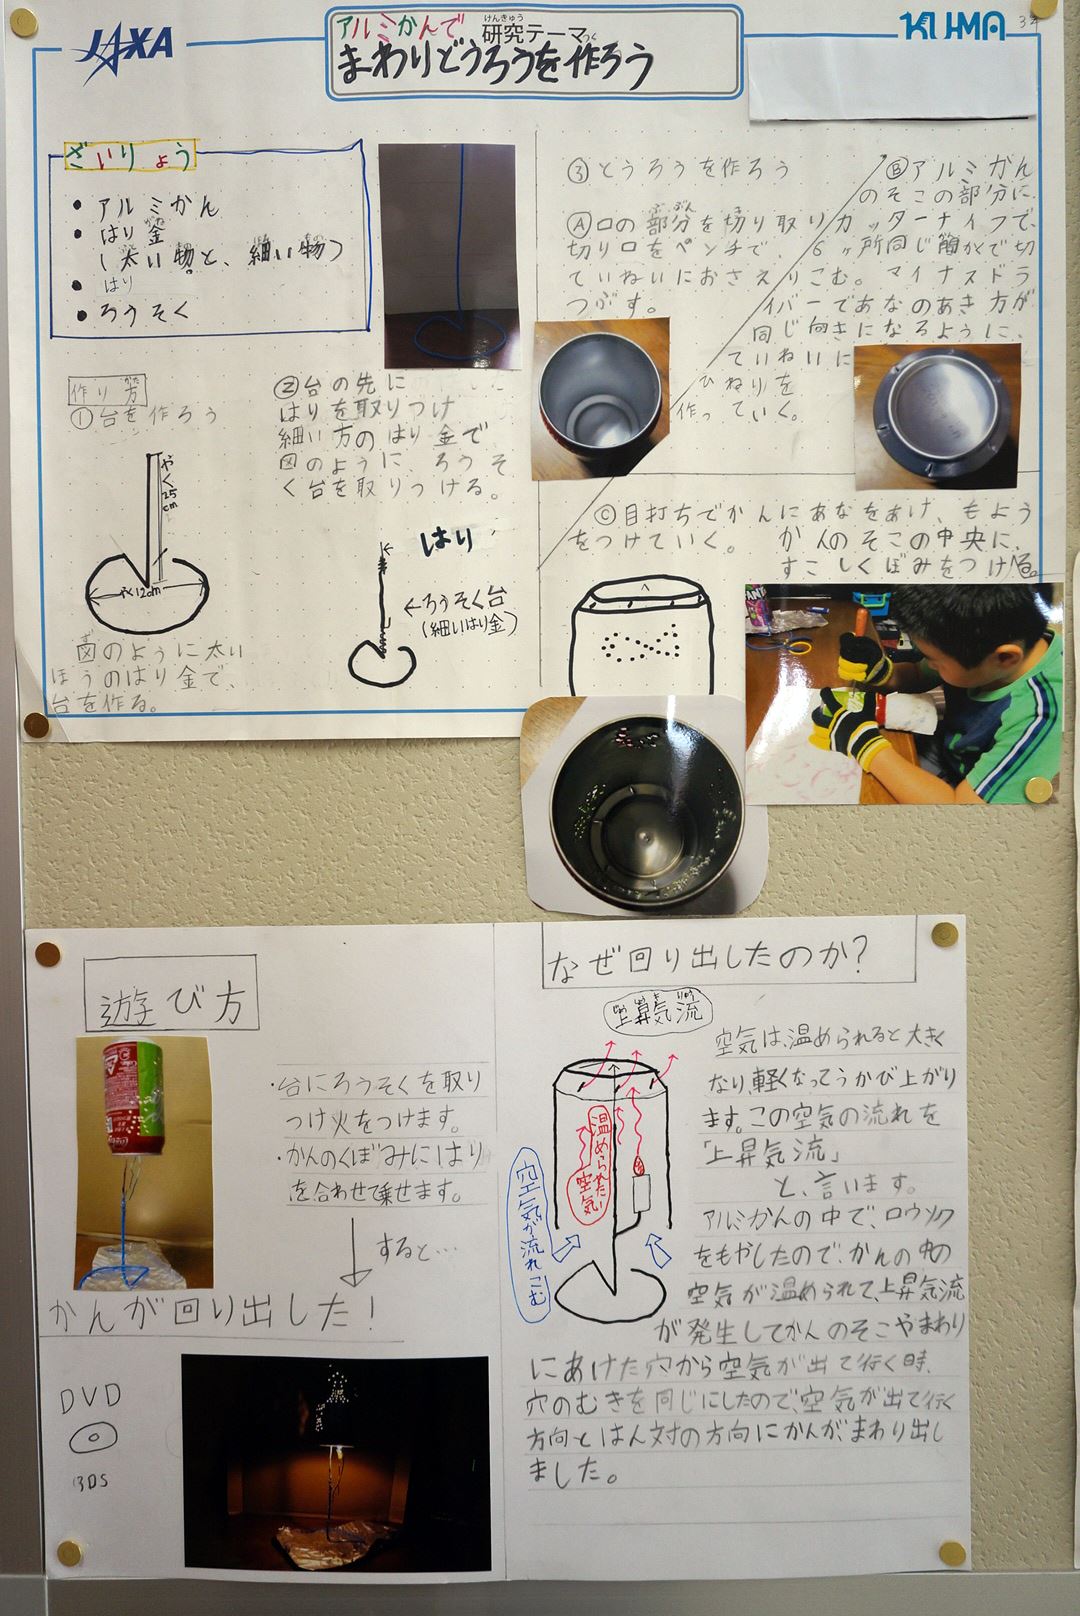 JAXA
KUMA
アルミかんで
研究テーマ
まわりどうろうを作ろう
ざいりょう
• アルミかん
• はり金
(太い物と、細い物)
• はり
• ろうそく
作り方
①台を作ろう
やく25cm
やく12cm
図のように太い
ほうのはり金で、
台を作る。
②台の先に
はりを取りつけ
細い方のはり金で
図のように、ろうそ
く台を取りつける。
はり
←ろうそく台
(細いはり金)
③とうろうを作ろう
Ⓐ口の部分を切り取り
切り口をペンチで、
ていねいにおさえ
つぶす。
Ⓑアルミかん
のそこの部分に
カッターナイフで、
6ヶ所同じ間かくで切
りこむ。マイナスドラ
イバーであなのあき方が
同じ向きになるように、
ていねいに
ひねりを
作っていく。
Ⓒ目打ちでかんにあなをあけ、もよう
をつけていく。かんのそこの中央に、
すこしくぼみをつける。
遊び方
・台にろうそくを取り
つけ火をつけます。
・かんのくぼみにはり
を合わせて乗せます。
すると…
かんが回り出した!
DVD
3DS
なぜ回り出したのか?
上昇気流
温められた空気
空気が流れこむ
空気は、温められると大きく
なり、軽くなってうかび上がり
ます。この空気の流れを
「上昇気流」
と、言います。
アルミかんの中で、ロウソク
をもやしたので、かんの中の
空気が温められて、上昇気流
が発生してかんのそこやまわり
にあけた穴から空気が出て行く時、
穴のむきを同じにしたので、空気が出て行く
方向とはん対の方向にかんが、まわり出し
ました。